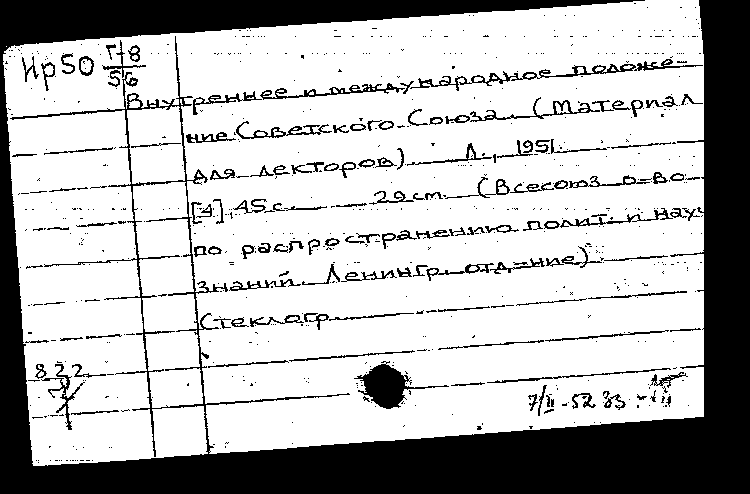 Нр50 Г-8
56
Внутреннее и международное положе-
ние Советского Союза. (Материал
для лекторов). Л., 1951.
[4], 45 с. 29 cm. (Всесоюз о-во
по распространению полит. и науч
знаний. Ленингр. отд-ние)
Стеклогр.
822
7/II-52